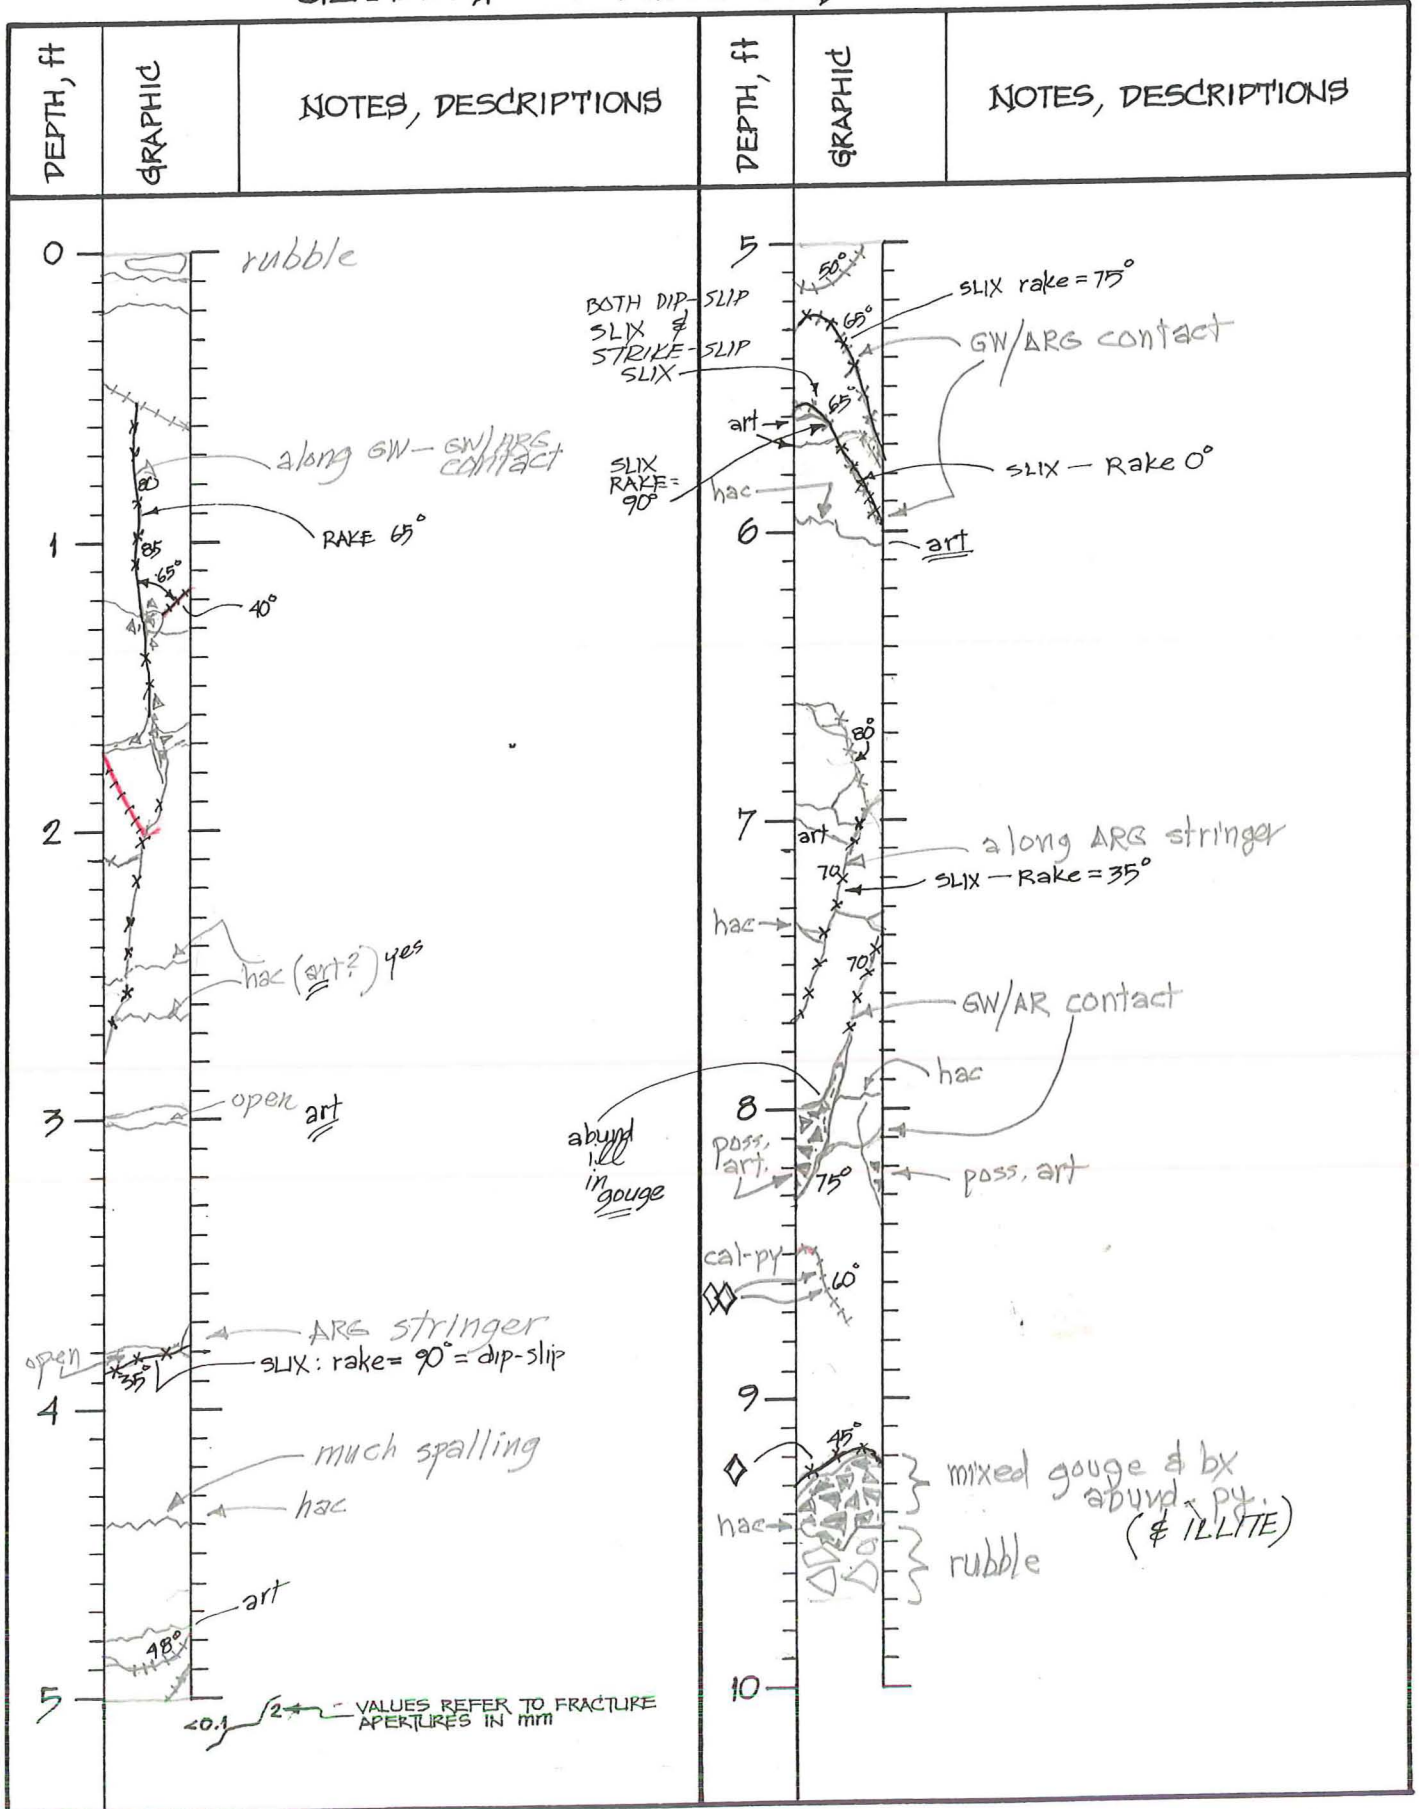 DEPTH, ft
GRAPHIC
NOTES, DESCRIPTIONS
0
rubble
80
along GW-GW/ARG
contact
RAKE 65°
1
85
65°
40°
2
hac (art?) yes
open art
3
ARG stringer
open
35°
SLIX: rake= 90° = dip-slip
4
much spalling
hac
art
48°
5
<0.1
2
VALUES REFER TO FRACTURE
APERTURES IN mm
DEPTH, ft
GRAPHIC
NOTES, DESCRIPTIONS
5
50°
SLIX rake = 75°
BOTH DIP-SLIP
SLIX &
STRIKE-SLIP
SLIX
65°
GW/ARG contact
65°
art
SLIX
RAKE=
90°
SLIX — Rake 0°
hac
6
art
80°
7
art
along ARG stringer
70
SLIX — Rake = 35°
hac
70
GW/AR contact
hac
8
abund
ill
in
gouge
poss.
art.
75°
poss. art
cal-py
60°
9
45°
mixed gouge & bx
abund. py.
(& ILLITE)
hac
rubble
10